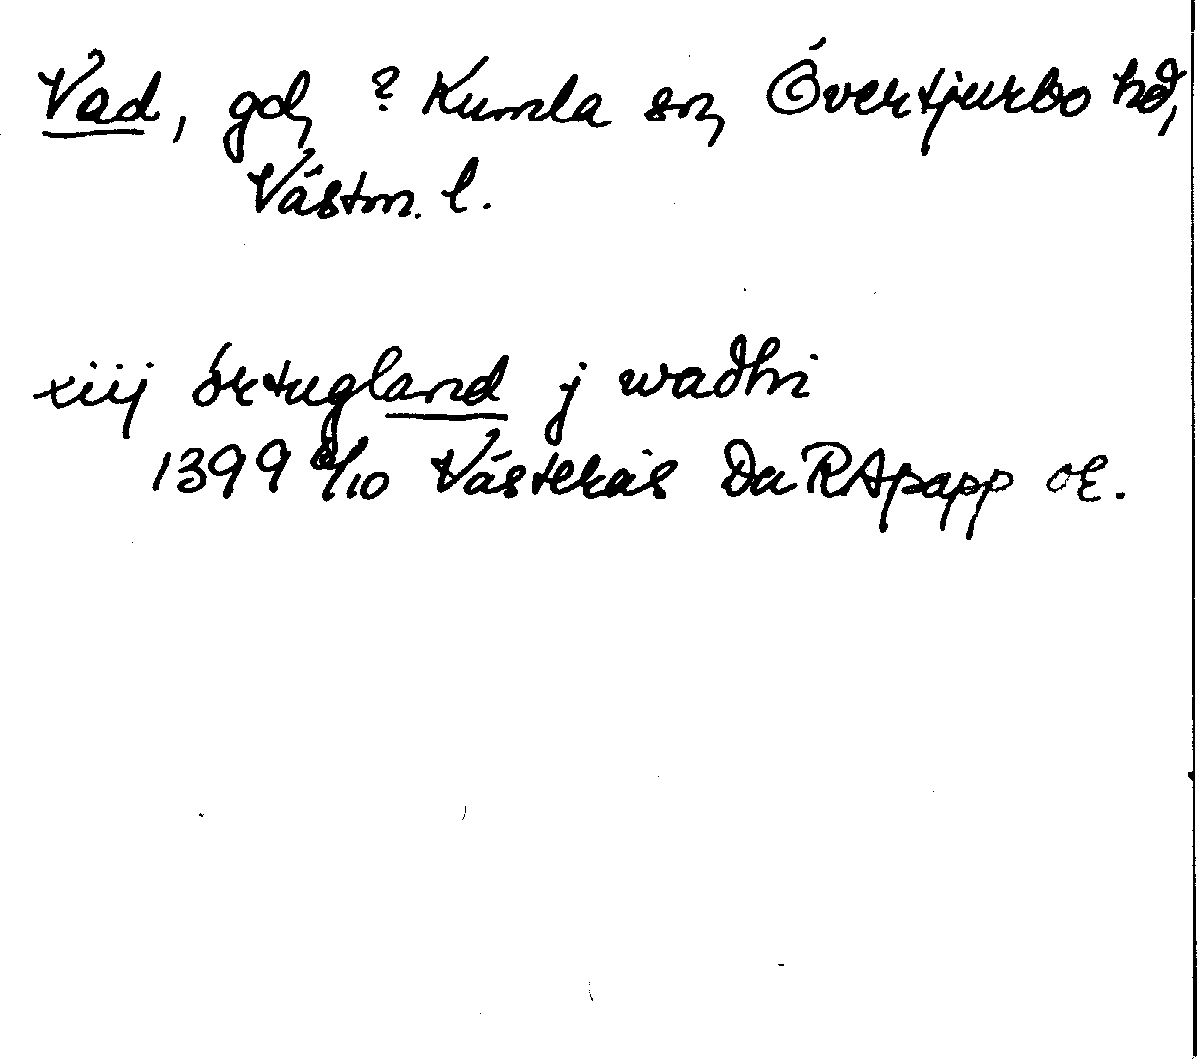 Vad, gd, ? Kumla sn, Övertjurbo hd,
Västm. l.
xiij örtugland j waðhi
1399 /10 Västerås Da RApapp or.